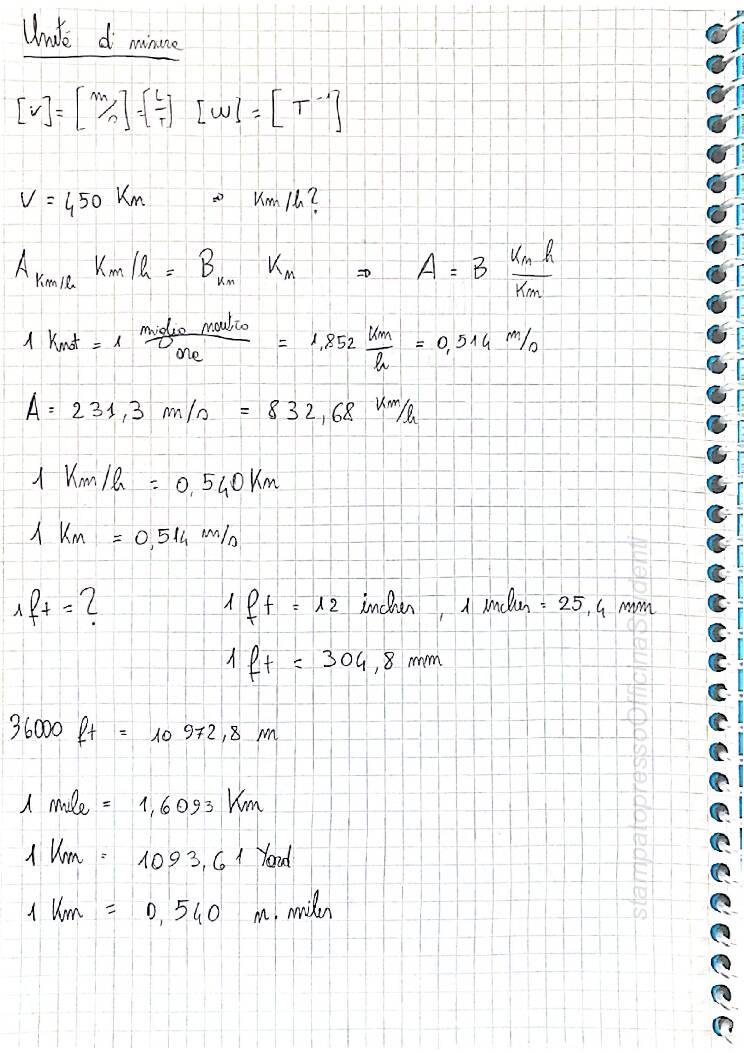 Unità di misura
[v] = [m/s] = [L/T] [W] = [T⁻¹]
V = 450 Kn ⇒ Km/h?
A_Km/h Km/h = B_Kn Kn ⇒ A = B Kn h/Km
1 Knot = 1 miglio nautico/ore = 1,852 Km/h = 0,514 m/s
A = 231,3 m/s = 832,68 Km/h
1 Km/h = 0,540 Kn
1 Kn = 0,514 m/s
1 ft = ? 1 ft = 12 inches , 1 inches = 25,4 mm
1 ft = 304,8 mm
36000 ft = 10 972,8 m
1 mile = 1,6093 Km
1 Km = 1093,61 Yard
1 Km = 0,540 n. miles
stampatopressoOfficinaStudenti